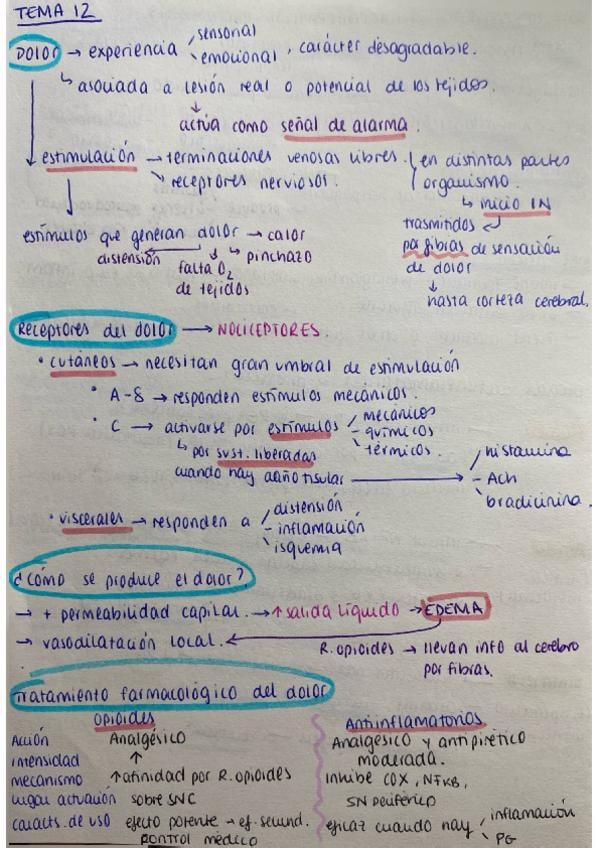 TEMA 12
DOLOR → experiencia sensorial
emocional, carácter desagradable.
↳ asociada a lesión real o potencial de los tejidos.
↓
actúa como señal de alarma.
estimulación → terminaciones venosas libres. en distintas partes
↘ receptores nerviosos. organismo.
↳ inicio IN
estímulos que generan dolor → calor trasmitidos ↵
distensión falta O2 ↳ pinchazo por fibras de sensación
de tejidos de dolor
↓
hasta corteza cerebral.
Receptores del dolor → NOCICEPTORES.
• cutáneos → necesitan gran umbral de estimulación
• A-δ → responden estímulos mecánicos.
• C → activarse por estímulos mecánicos
- químicos
térmicos.
↳ por sust. liberadas
cuando hay daño tisular → histamina
- Ach
bradicinina.
• viscerales → responden a distensión
- inflamación
isquemia
¿Cómo se produce el dolor?
→ + permeabilidad capilar. → ↑ salida líquido → EDEMA
→ vasodilatación local. ←
R. opioides → llevan info al cerebro
por fibras.
Tratamiento farmacológico del dolor
Opioides Antiinflamatorios
Acción Analgésico Analgésico y antipirético
intensidad ↑ moderada.
mecanismo ↑ afinidad por R. opioides Inhibe COX, NFKB,
lugar actuación sobre SNC SN periférico
caracts. de uso efecto potente → ef. secund. eficaz cuando hay inflamación
control médico PG